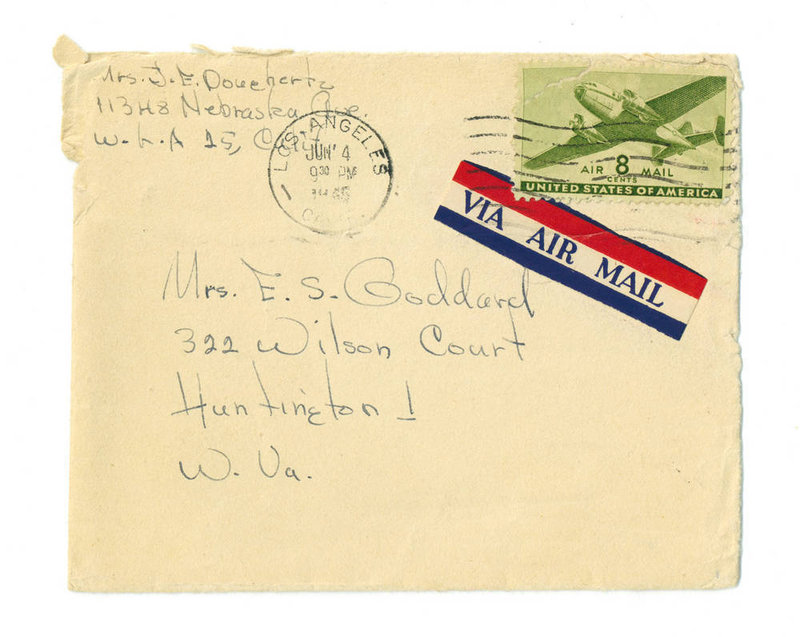 Mrs. J. E. Dougherty
11348 Nebraska Ave.
W. L. A 25, Calif
LOS ANGELES
JUN 4
9 30 PM
1945
CALIF.
AIR 8 MAIL
CENTS
UNITED STATES OF AMERICA
VIA AIR MAIL
Mrs. E. S. Goddard
322 Wilson Court
Huntington 1
W. Va.